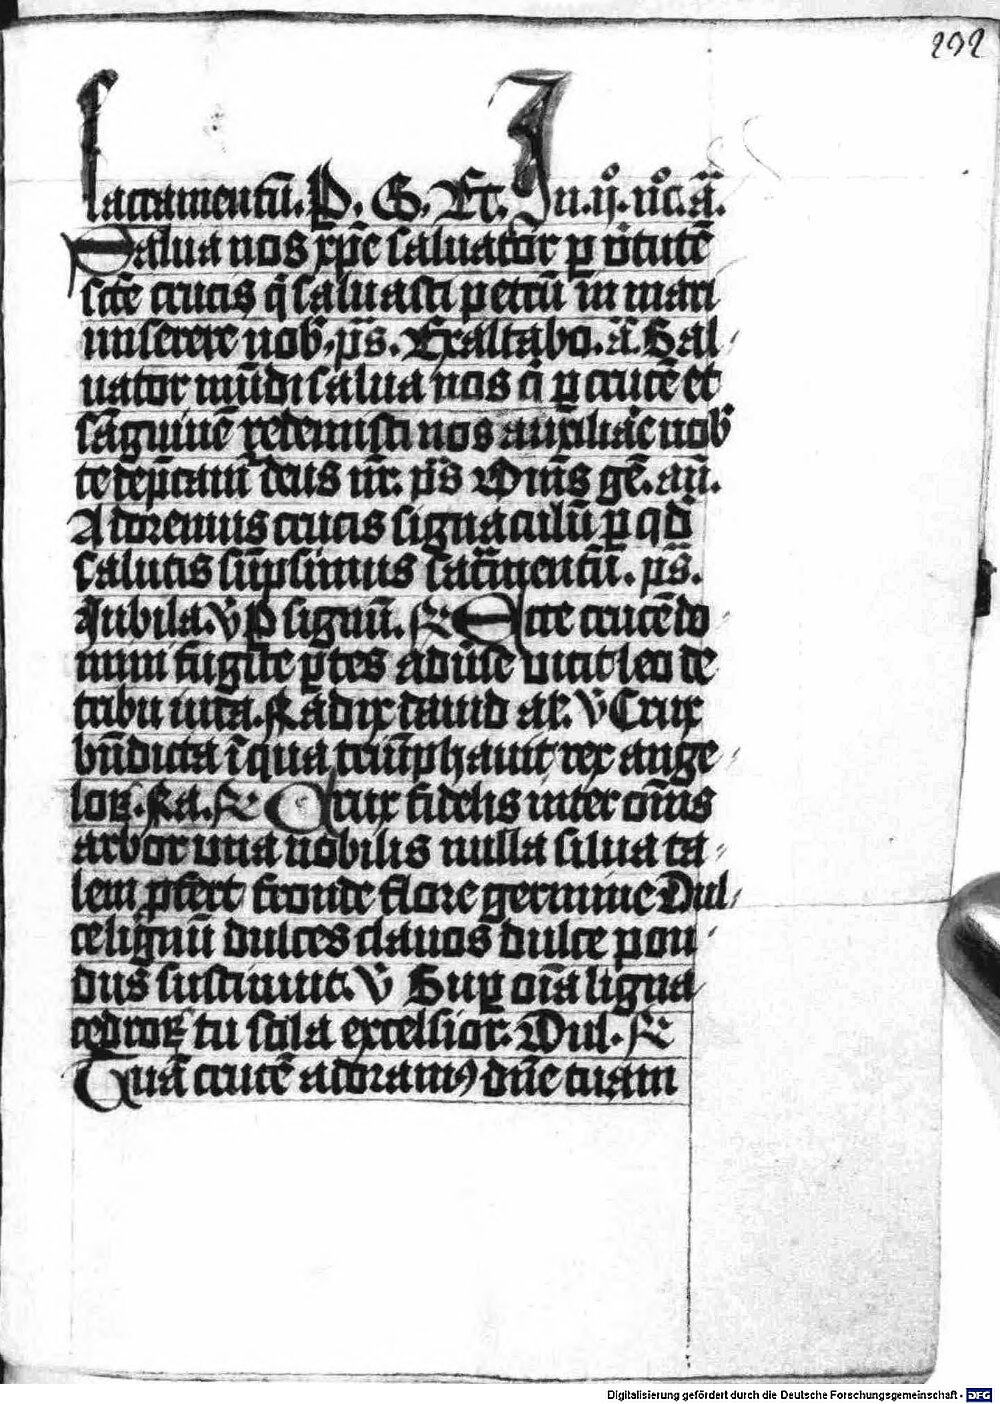 202
sacramentū. P. G. Et. In. ij. noc. ā.
Salua nos xp̄e saluator p v̓tutē
scē crucis q̓ saluasti petrū in mari
miserere nob̓. ps̄. Exaltabo. ā. Sal
uator mūdi salua nos q̓ p crucē et
sāguinē redemisti nos auxiliāe nob̓
te dep̄camˀ deus nr̄. ps̄ Om̄s gē. an̄.
Adoremus crucis signaculū p qd̓
salutis sūpsimus sac̓mentū. ps̄.
Iubila. v̄ P signū. ℟ Ecce crucē do
mini fugite p̱tes aduˀse vicit leo de
tribu iuda. Radix dauid al̄. v̄ Crux
bn̄dicta ī qua triūphauit rex ange
loꝝ. Ra. ℟ Crux fidelis inter om̄s
arbor vna nobilis nulla silua ta
lem p̱fert fronde flore germine Dul
ce lignū dulces clauos dulce pon
dus sustinuit. v̄ Sup̱ om̄ia ligna
cedroꝝ tu sola excelsior. Dul. ℟
Tuā crucē adoramꝰ dn̄e tuam
Digitalisierung gefördert durch die Deutsche Forschungsgemeinschaft - DFG